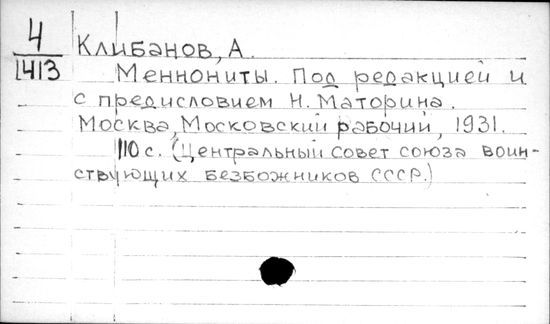 4
1413
Клибанов, А.
Меннониты. Под редакцией и
с предисловием Н. Маторина.
Москва, Московский рабочий, 1931.
110 с. (Центральный совет союза воин-
ствующих безбожников СССР.)